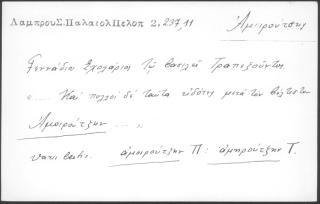 Λαμπρου Σ. Παλαιολ Πελοπ 2, 237, 11 Ἀμιρούτσης
Γενναδίου Σχολαρίου Τῷ βασιλεῖ Τραπεζοῦντος
« .... Καὶ πολλοὶ δὲ ταῦτα εἰδότες μετὰ τῶν βελτίστων
Ἀμοιρούτζην .... »
ἀμοιρούτζην Π : ἀμηρούτζην Γ.